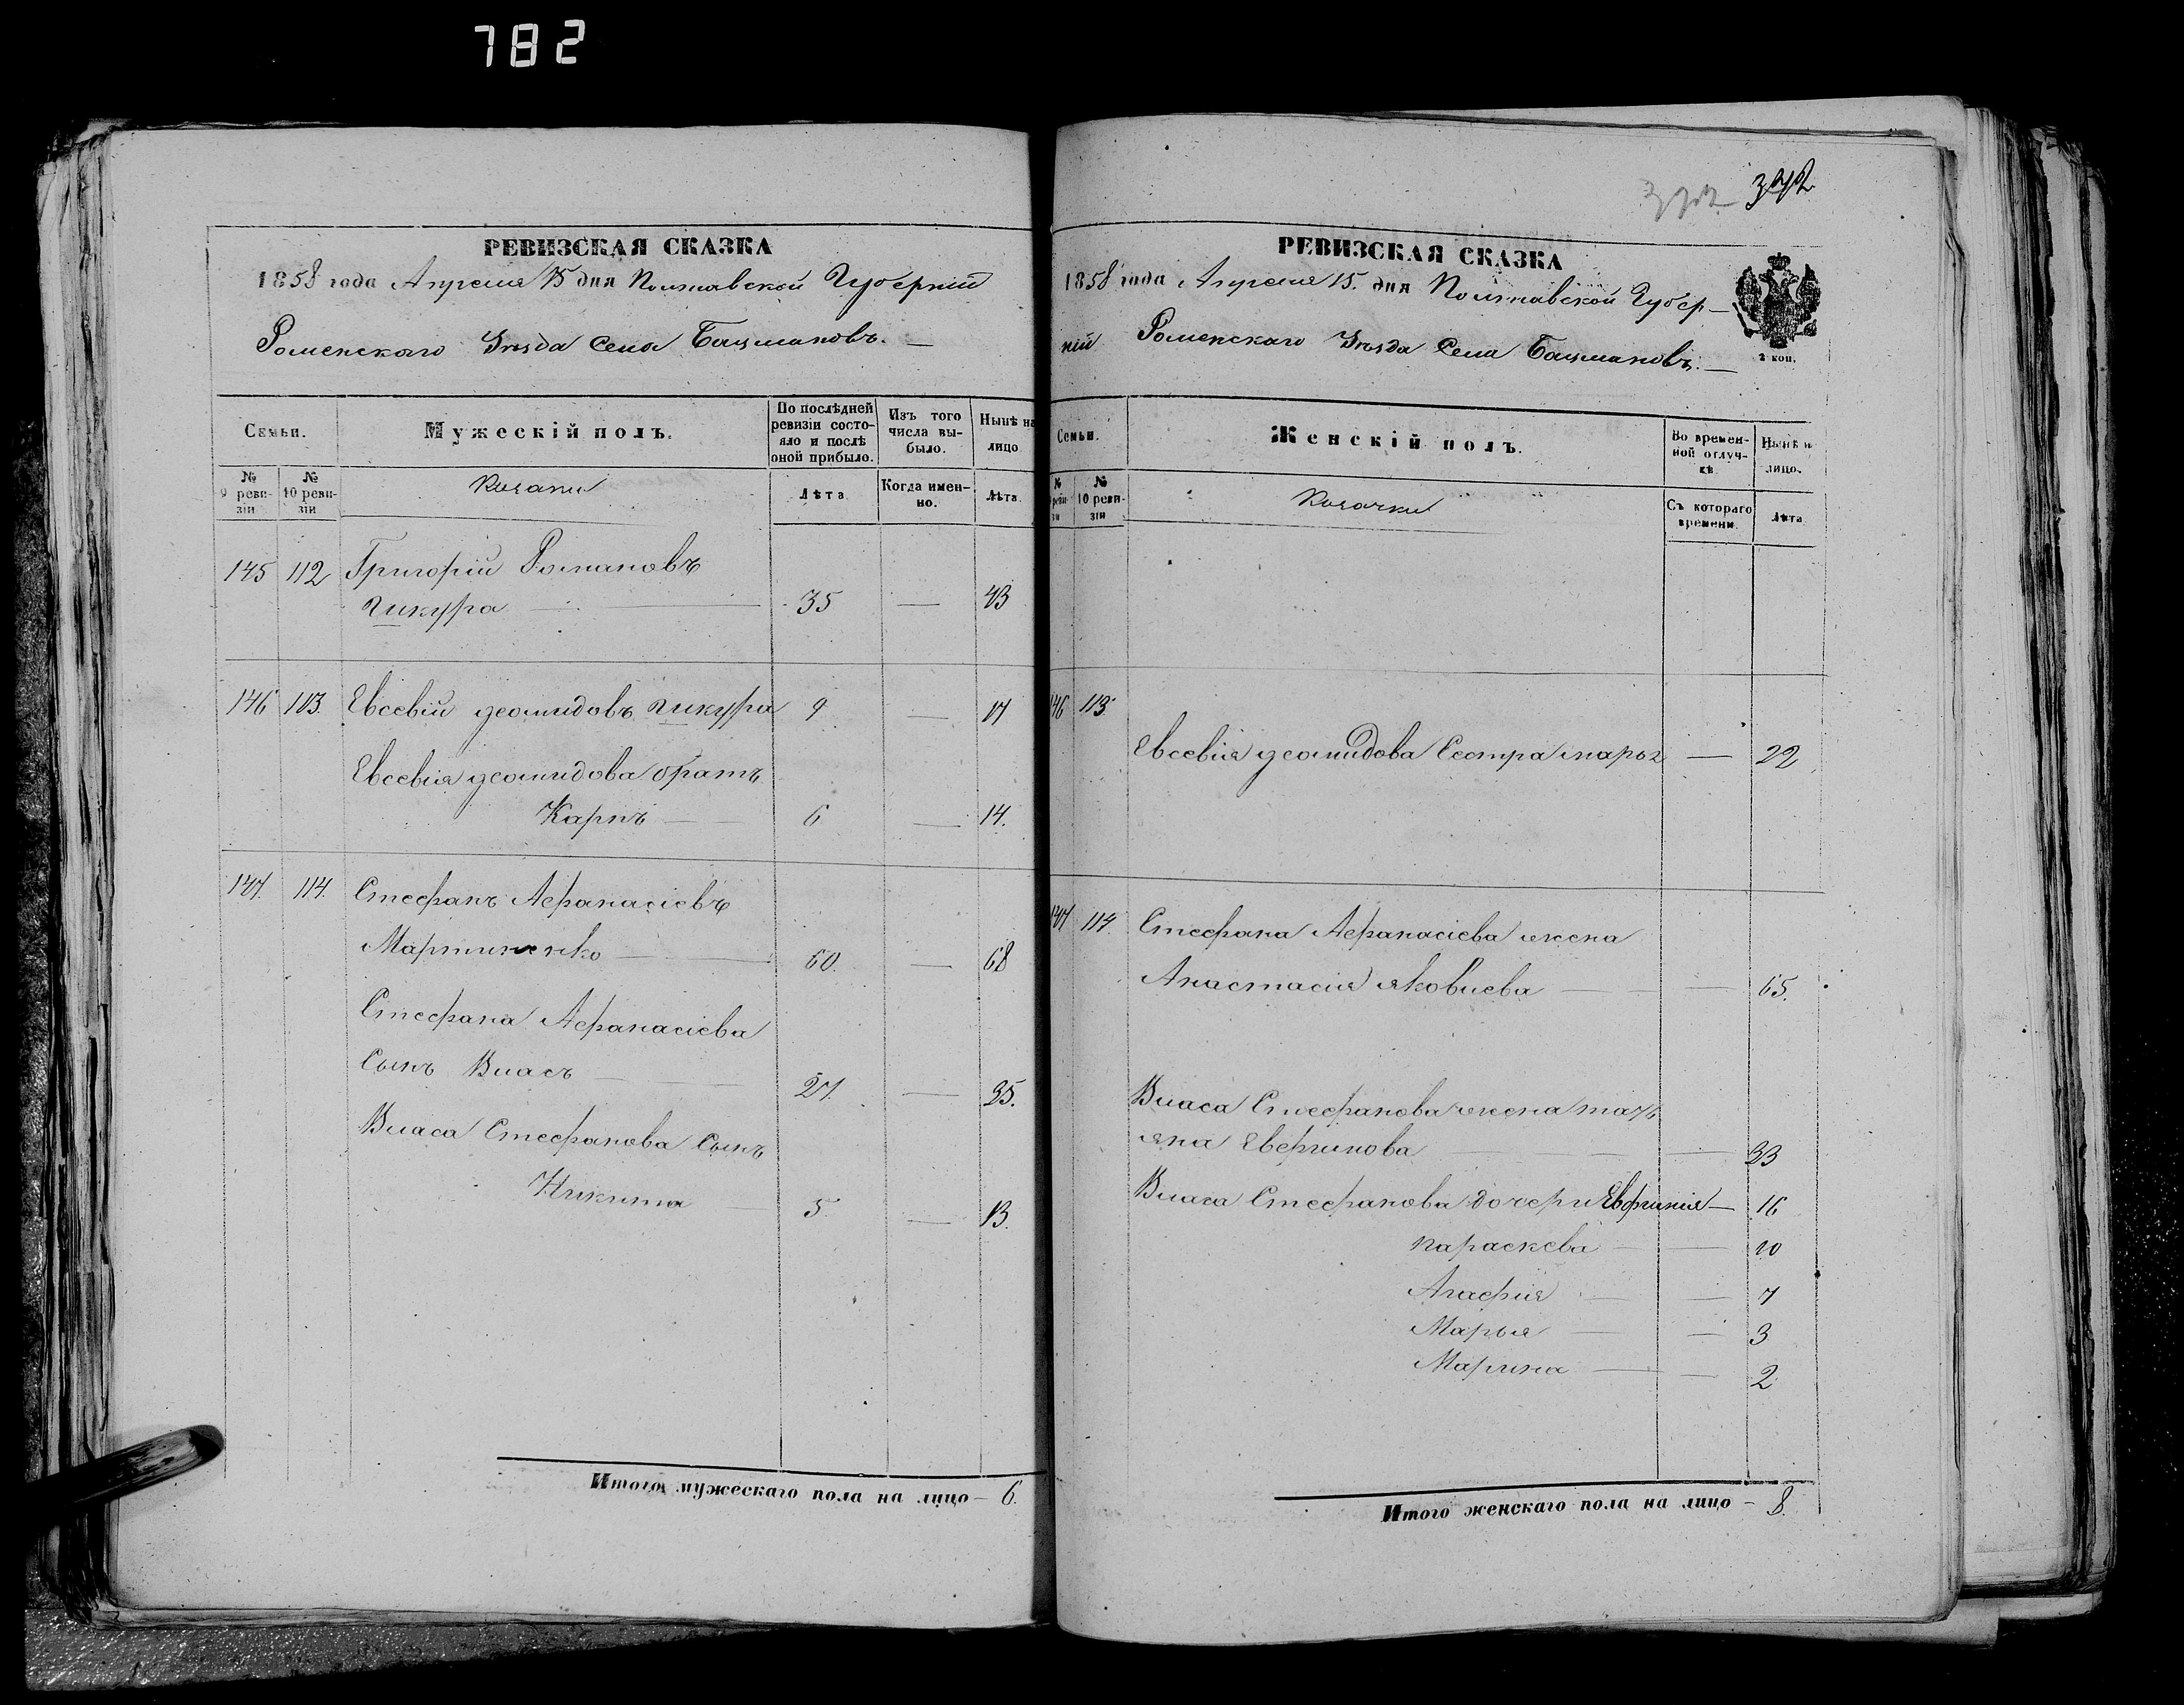 782
РЕВИЗСКАЯ СКАЗКА
1858 года Апреля 15 дня Полтавской Губерніи
Роменскаго Уѣзда Села Бацмановъ.
Семьи.
Мужескій полъ.
По послѣдней ревизіи состояло и послѣ оной прибыло.
Изъ того числа выбыло.
Нынѣ на лицо
№ 9 ревизіи
№ 10 ревизіи
Козаки
Лѣта
Когда именно.
Лѣта
145 112 Григорій Романовъ
Шкура — 35 — 43
146 113. Евсевій Деомидовъ 9 — 17
Евсевія Деомидова братъ
Карпъ — 6 — 14.
147. 114. Стефанъ Афанасіевъ
Мартиненко — 60. — 68
Стефана Афанасіева
Сынъ Власъ — 27. — 35.
Власа Стефанова Сынъ
Никита 5 — 13.
Итого мужескаго пола на лицо — 6.
372 372
РЕВИЗСКАЯ СКАЗКА
1858 года Апреля 15. дня Полтавской Губер-
ній Роменскаго Уѣзда Села Бацмановъ. —
2 коп.
Семьи.
Женскій полъ.
Во временной отлучкѣ.
Нынѣ на лицо.
№ ревизіи
№ 10 ревизіи
Козачки
Съ котораго времени.
Лѣта
146 113.
Евсевія Деомидова Сестра — 22
147 114. Стефана Афанасіева жена
Анастасія Яковлева — 65.
Власа Стефанова жена Тать
яна — 33
Власа Стефанова дочери Евфимія — 16
Параскева — 10
Агафія — 7
Марья — 3
Марина — 2
Итого женскаго пола на лицо — 8.